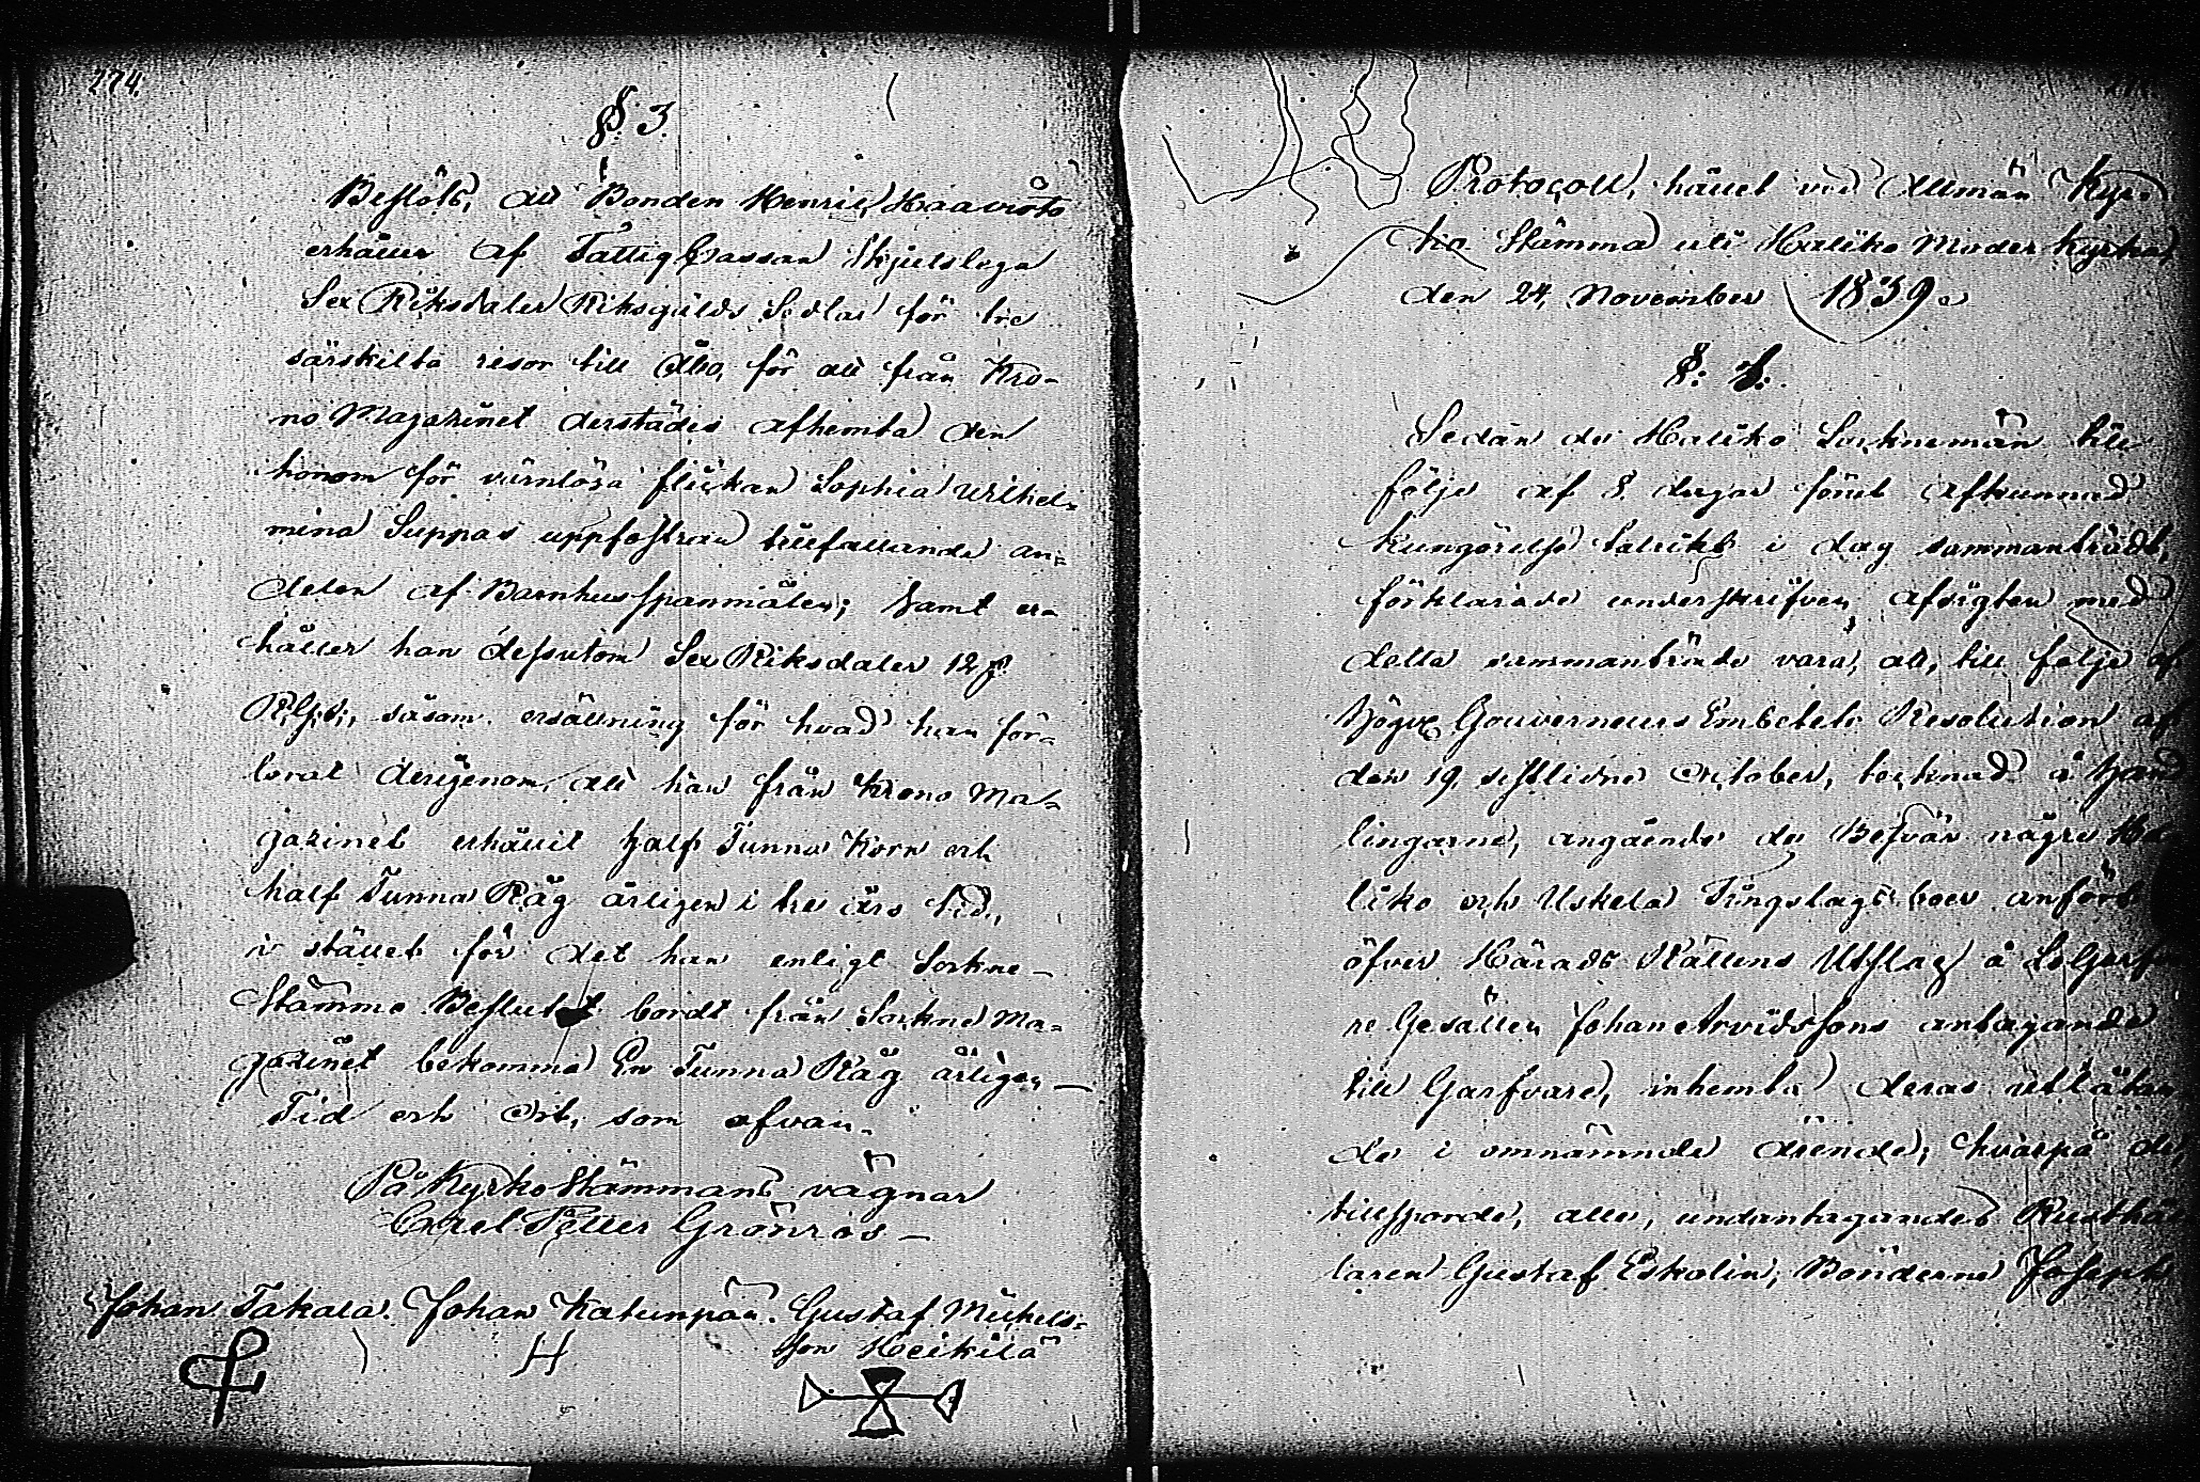 274.
§. 3.
Beslöts, att Bonden Henric Haavisto
erhåller af Fattig Cassan Skjutslega
Sex Riksdaler Riksgälds Sedlar för tre
särskilta resor till Åbo, för att från Kro-
no Magazinet derstädes afhemta den
honom för värnlösa flickan Sophia Wilhel-
mina Suppas uppfostran tillfallande an-
delen af Barnhusspanmålen; samt er-
håller han dessutom Sex Riksdaler 12 s.
R.G.S., såsom ersättning för hvad han för-
lorat derigenom, att han från Krono Ma-
gazinet erhållit half Tunna Korn och
half Tunna Råg årligen i tre års tid,
i stället för det han enligt Sockne-
Stämmo Beslutet bordt från Sockne Ma-
gazinet bekomma En Tunna Råg årligen —
Tid och Ort, som ofvan.
På Kyrko Stämmans vägnar
Carl Petter Grönroos —
Johan Takala. Johan Katunpää. Gustaf Mickels-
son Heikilä
H
Protocoll, hållet vid Allmän Kyr-
ko Stämma uti Haliko Moderkyrka,
den 24 November 1839.
§. 1.
Sedan de Haliko Socknemän till
följe af 8 dagar förut afkunnad
kungörelse talrikt i dag sammanträdt,
förklarade underskrifven afsigten med
detta sammanträde vara, att, till följe af
Högv. Gouverneurs Embetets Resolution af
den 19 sistlidne October, tecknad å Hand-
lingarne, angående de Besvär någre Ha-
liko och Uskela Tingslags boer anfört
öfver Härads Rättens Utslag å
re Gesällen Johan Arvidssons antagande
till Garfvare, inhemta deras utlåtan-
de i omnämnde ärende; hvarpå de,
tillsporde, alle, undantagandes Rusthål-
laren Gustaf Eskolin, Bönderne Joseph